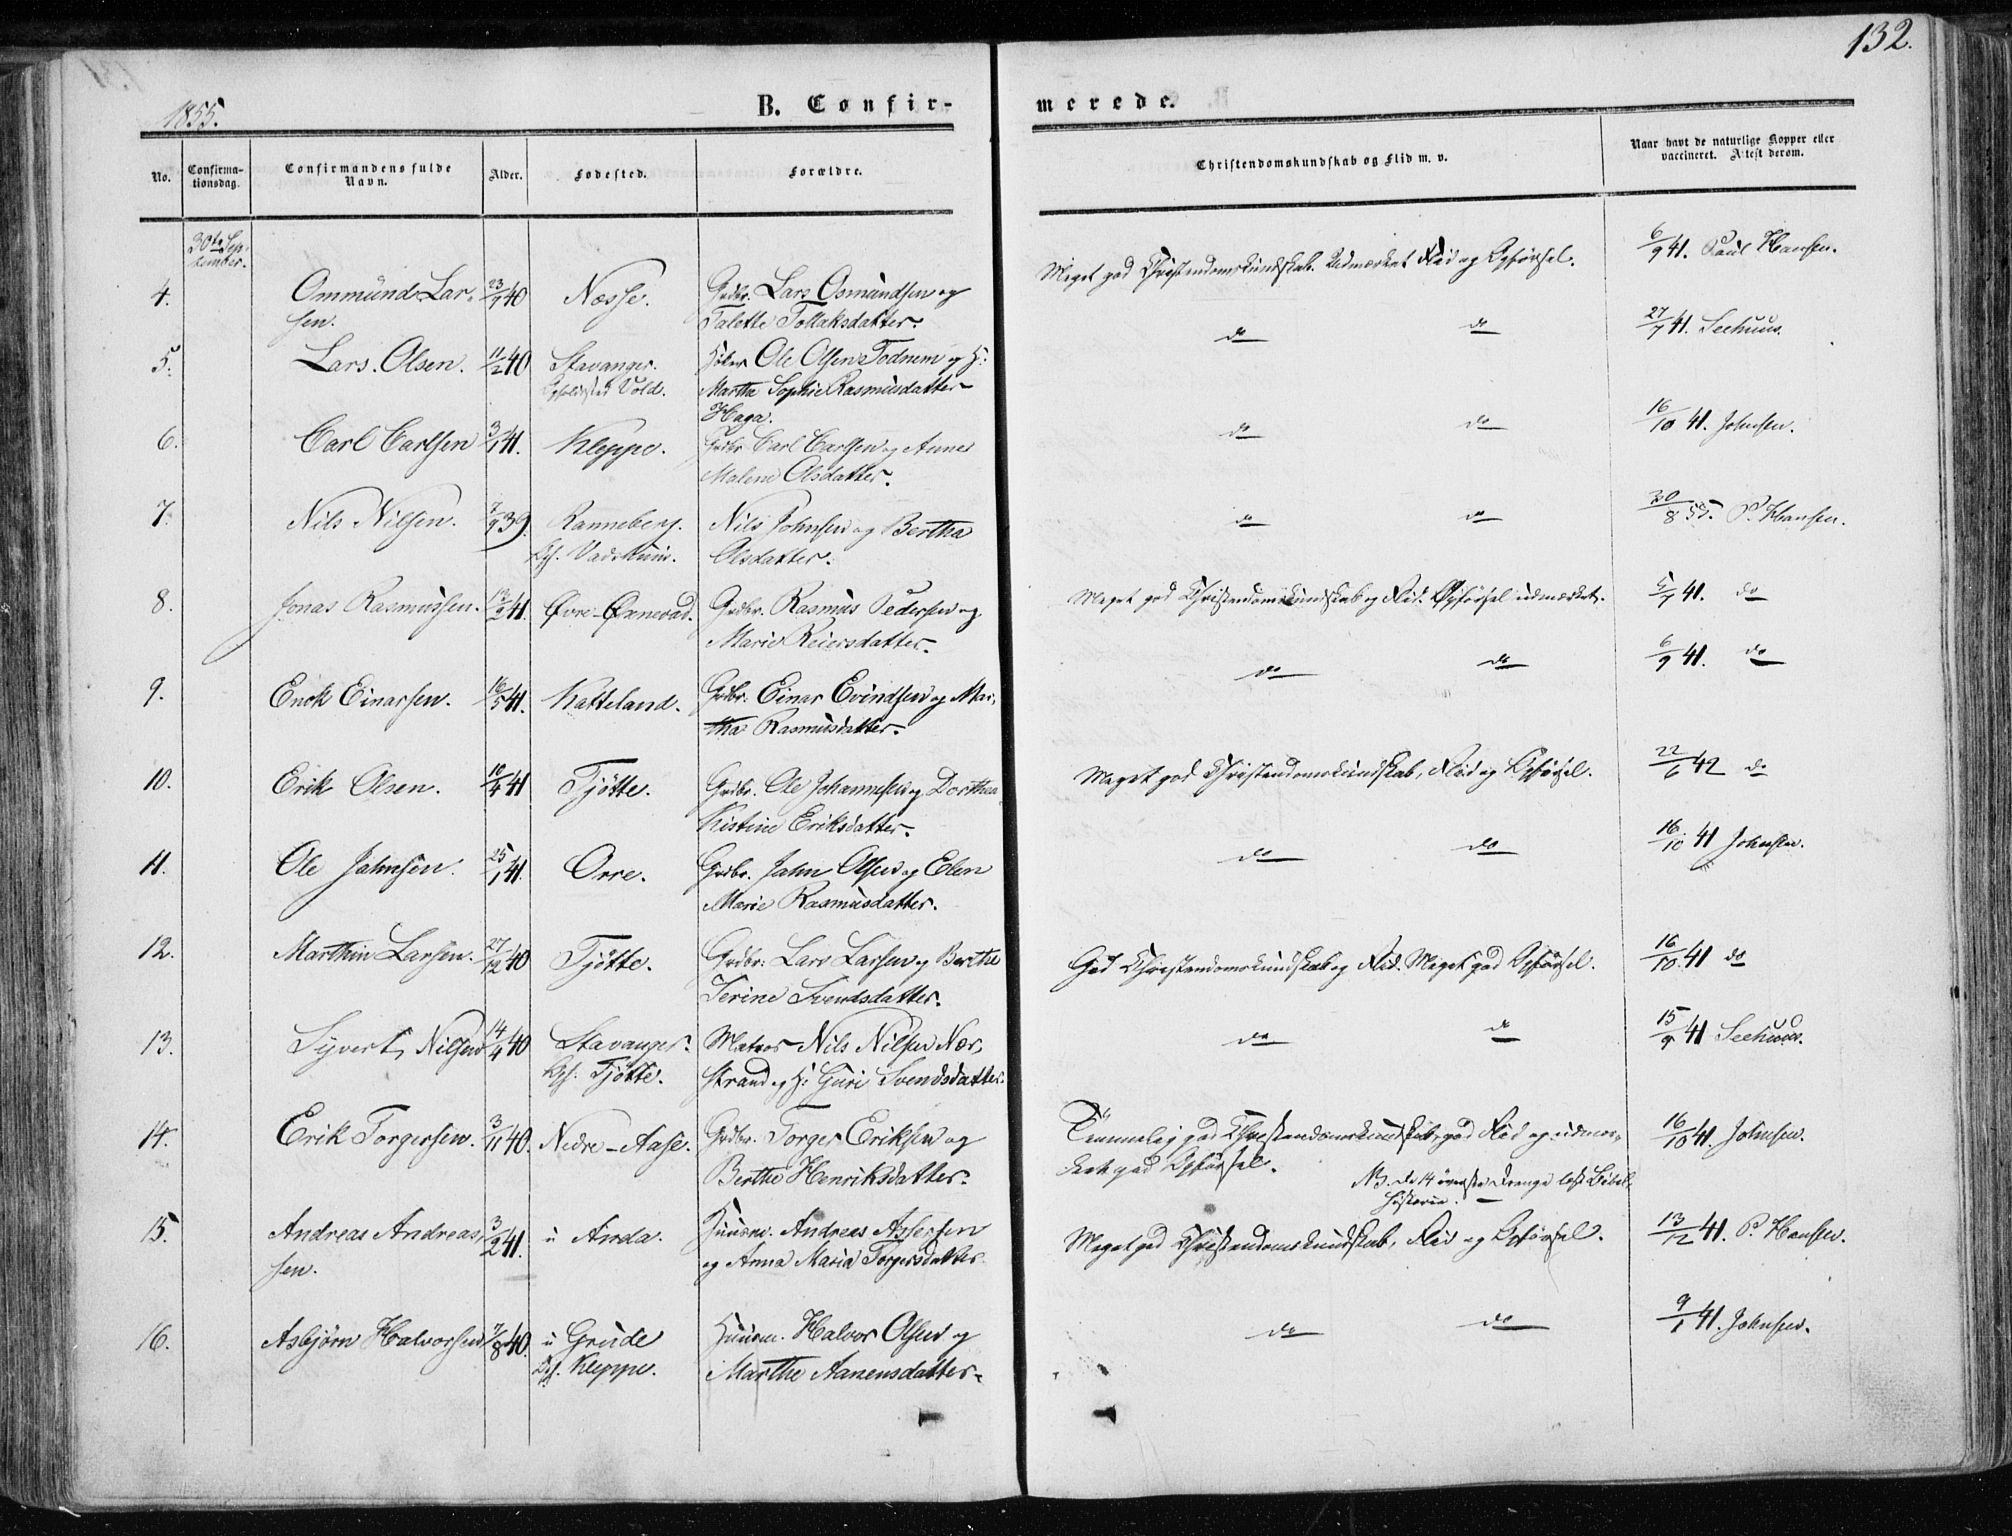 132.
1855.
B. Confir-
merede.
No.
Confirma-
tionsdag.
Confirmandens fulde
Navn.
Alder.
Fødested.
Forældre.
Christendomskundskab og Flid m. v.
Naar havt de naturlige Kopper eller
vaccineret. Attest derom.
30te Sep-
tember.
4. Ommund Lar- 23/9 40 Næsse. Grdbr. Lars Osmundsen og
sen. Talette Tollaksdatter.
Meget god Christendomskundskab. Udmærket Flid og Opførsel. 6/9 41. Paul Hansen.
5. Lars Olsen. 11/2 40 Stavanger. Ole Olsen Todnem og H:
Opholdssted Vold. Martha Sophie Rasmusdatter
Haga.
do do 27/7 41. Seehuus.
6. Carl Carlsen 3/1 41. Kleppe. Grdbr. Carl Carlsen og Anne
Malene Olsdatter.
do do 16/10 41. Johnsen.
7. Nils Nilsen. 7/9 39. Ranneberg. Nils Johnsen og Bertha
Oph. Olsdatter.
do do 30/8 55. P. Hansen.
8. Jonas Rasmussen. 13/2 41. Øvre-Øxnevad. Grdbr. Rasmus Pedersen og
Marie Reiersdatter.
Meget god Christendomskundskab og Flid. Opførsel udmærket. 41. do
9. Enok Einarsen. 16/5 41. Katteland. Grdbr. Einar Evindsen og Mar-
tha Rasmusdatter.
do do 6/9 41. do
10. Erik Olsen. 10/4 41 Tjøtte. Grdbr. Ole Johannesen og Dorthea
Kistine Eriksdatter.
Meget god Christendomskundskab, Flid og Opførsel. 22/6 42 do
11. Ole Jahnsen. 25/1 41. Orre. Grdbr. Jahn Olsen og Elen
Marie Rasmusdatter.
do do 16/10 41 Johnsen.
12. Marthin Larsen. 27/12 40 Tjøtte. Grdbr. Lars Larsen og Berthe
Serine Svendsdatter.
God Christendomskundskab og Flid. Meget god Opførsel. 16/10 41 do
13. Syvert Nilsen 14/4 40 Stavanger. Matros Nils Nilsen Nær-
Oph. Tjøtte. strand og H: Guri Svendsdatter.
do do 15/9 41 Seehuus.
14. Erik Torgersen. 3/11 40. Nedre-Aase. Grdbr. Torger Eriksen og
Berthe Henriksdatter.
Temmelig god Christendomskundskab, god Flid og udmær-
ket god Opførsel. 16/10 41. Johnsen.
NB. De 14 øverste Drenge læst Bibel-
historie.
15. Andreas Andreas- 3/2 41. u Anda. Huusm. Andreas Assersen
sen. og Anna Maria Torgersdatter
Meget god Christendomskundskab, Flid og Opførsel. 13/12 41. P. Hansen.
16. Asbjørn Halvorsen 7/8 40. u Grude Huusm. Halvor Olsen og
Oph. Kleppe. Marthe Aanensdatter.
do do 41. Johnsen.